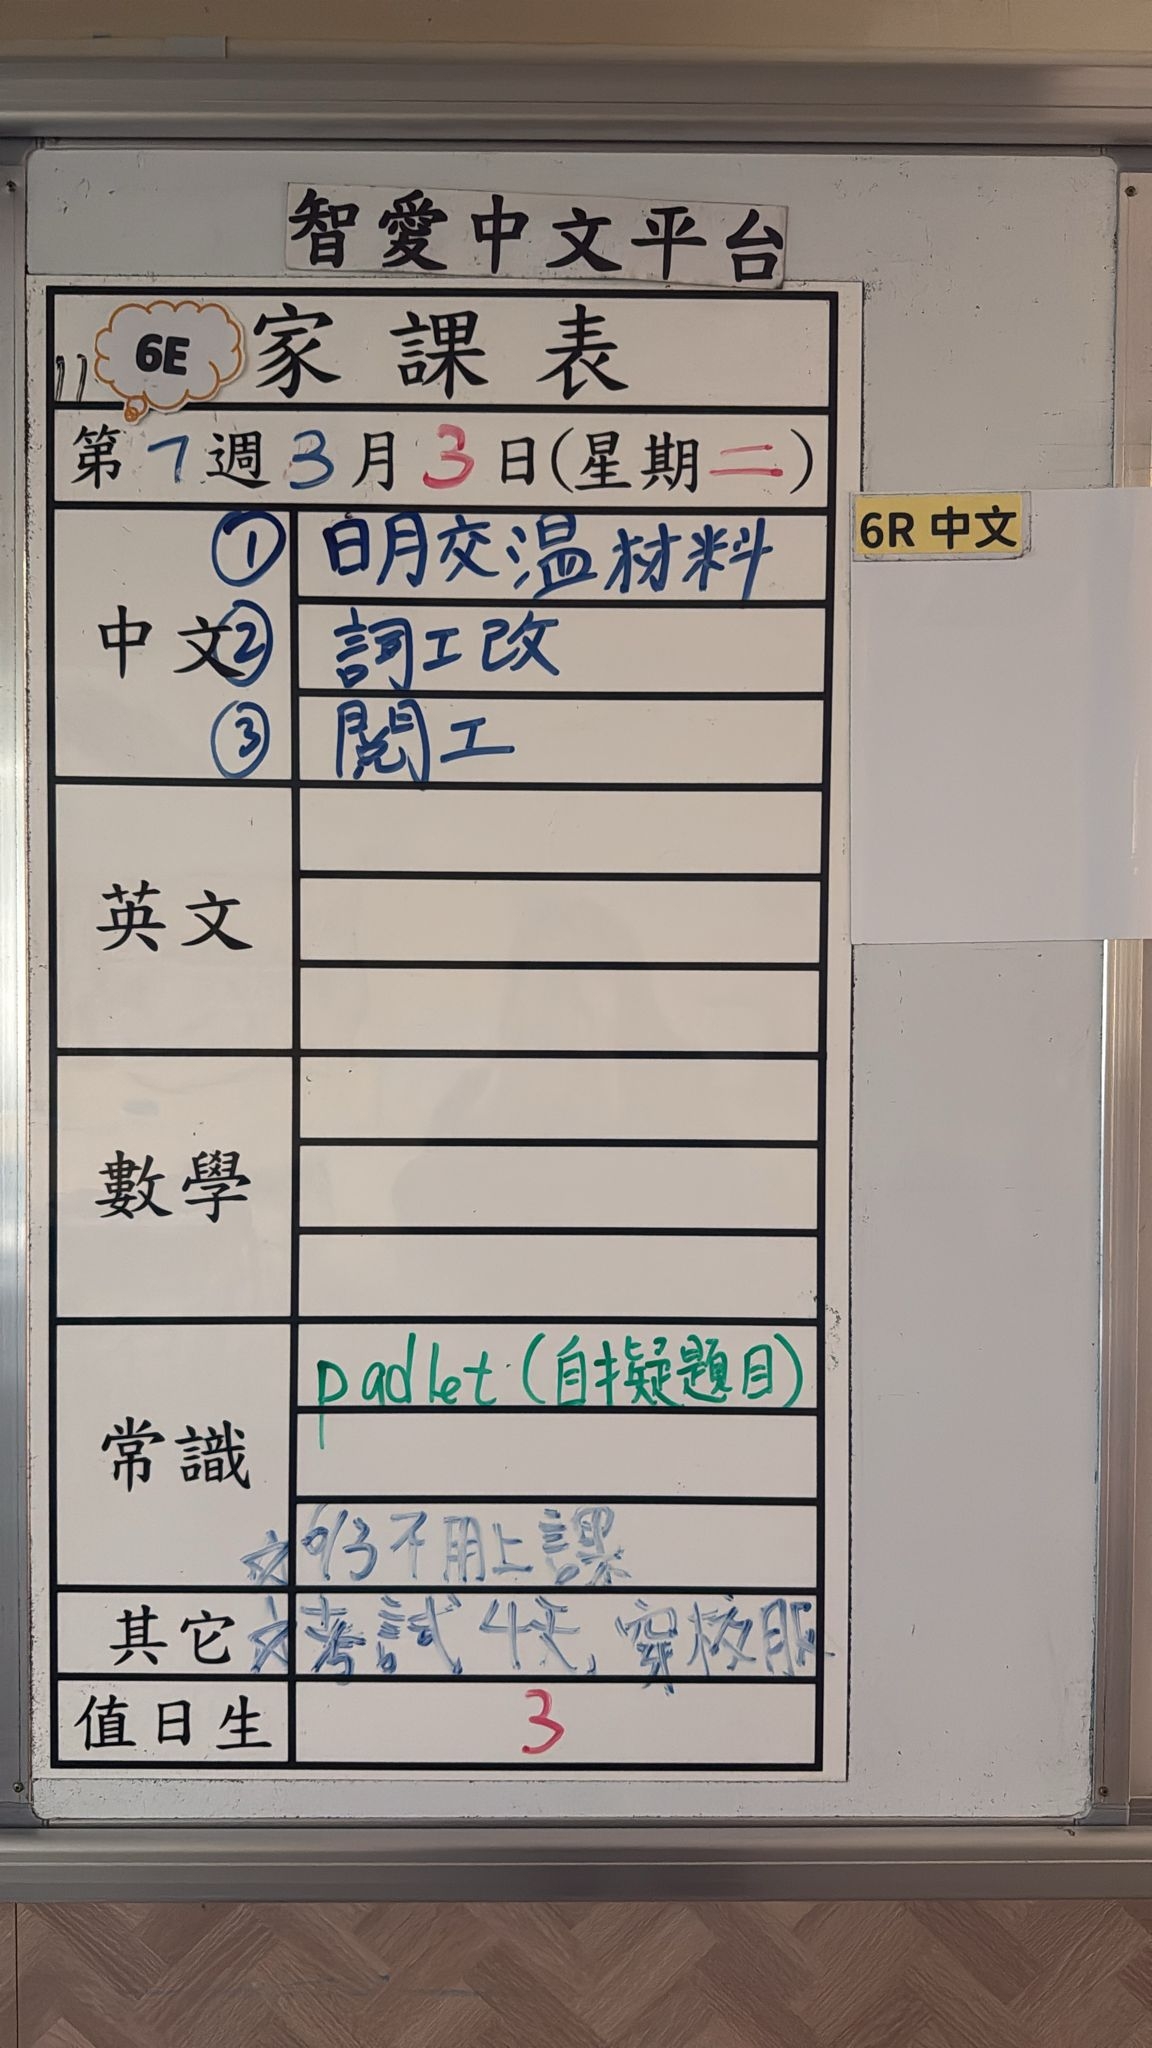 智愛中文平台
6E 家課表
第7週3月3日(星期二)
6R 中文
中文
① 明交溫材料
② 詞工改
③ 閱工
英文
數學
常識
padlet (自擬題目)
9/3不用上課
其它
考試4天, 穿校服
值日生
3